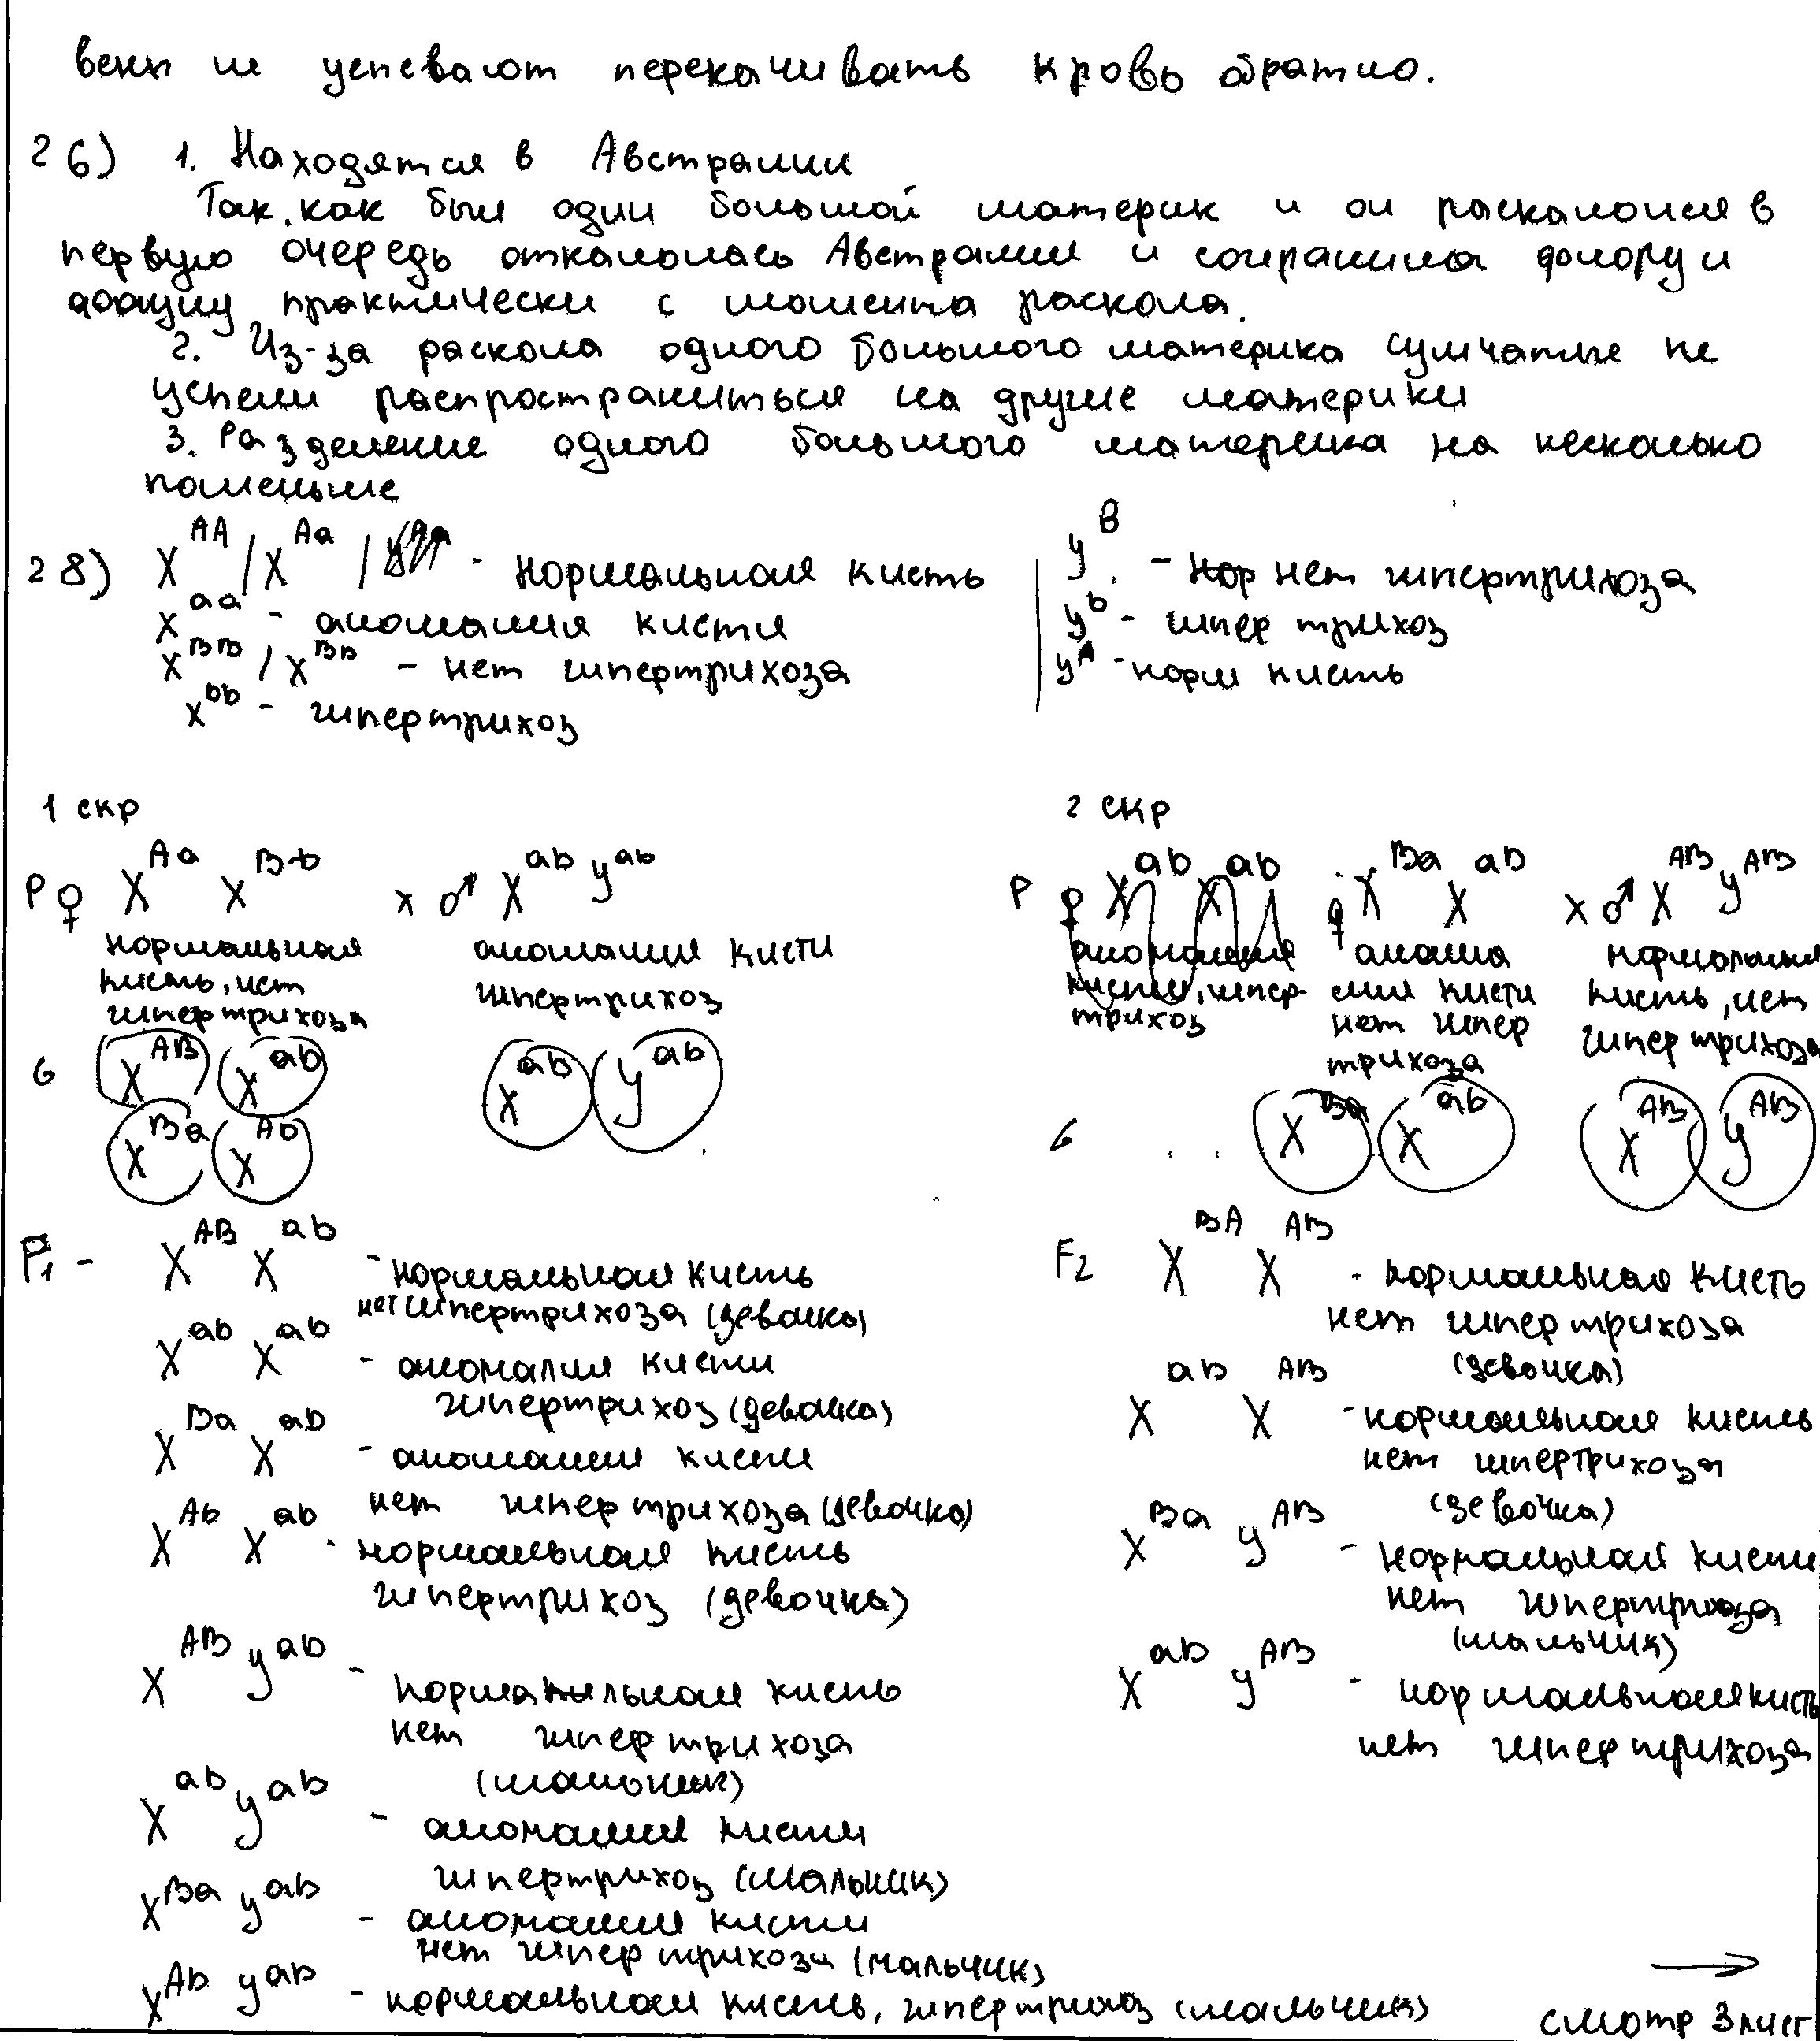 вены не успевают перекачивать кровь обратно.
26) 1. Находятся в Австралии
Так как был один большой материк и он раскололся в
первую очередь откололась Австралии и сохранила флору и
фауну практически с момента раскола.
2. Из-за раскола одного большого материка сумчатые не
успели распространиться на другие материки
3. Разделение одного большого материка на несколько
поменьше
28) X^AA / X^Aa / - нормальная кисть
X^aa - аномалия кисти
X^BB / X^Bb - нет гипертрихоза
X^bb - гипертрихоз
y^B - нет гипертрихоза
y^b - гипертрихоз
y^A - норм кисть
1 скр
P ♀ X^Aa X^Bb x ♂ X^ab y^ab
нормальная кисть, нет гипертрихоза
аномалия кисти гипертрихоз
G X^AB X^ab X^ab y^ab
X^Ba X^Ab
F1 - X^AB X^ab - нормальная кисть
нет гипертрихоза (девочка)
X^ab X^ab - аномалия кисти
гипертрихоз (девочка)
X^Ba X^ab - аномалия кисти
нет гипертрихоза (девочка)
X^Ab X^ab - нормальная кисть
гипертрихоз (девочка)
X^AB y^ab - нормальная кисть
нет гипертрихоза
(мальчик)
X^ab y^ab - аномалия кисти
гипертрихоз (мальчик)
X^Ba y^ab - аномалия кисти
нет гипертрихоза (мальчик)
X^Ab y^ab - нормальная кисть, гипертрихоз (мальчик)
2 скр
P ♀ X^ab X^ab ♀ X^Ba X^ab x ♂ X^AB y^AB
аномалия кисти, гипертрихоз
аномалия кисти нет гипертрихоза
нормальная кисть, нет гипертрихоза
G X^Ba X^ab X^AB y^AB
F2 X^BA X^AB - нормальная кисть
нет гипертрихоза
(девочка)
X^ab X^AB - нормальная кисть
нет гипертрихоза
(девочка)
X^Ba y^AB - нормальная кисть
нет гипертрихоза
(мальчик)
X^ab y^AB - нормальная кисть
нет гипертрихоза
→
смотр 3 лист